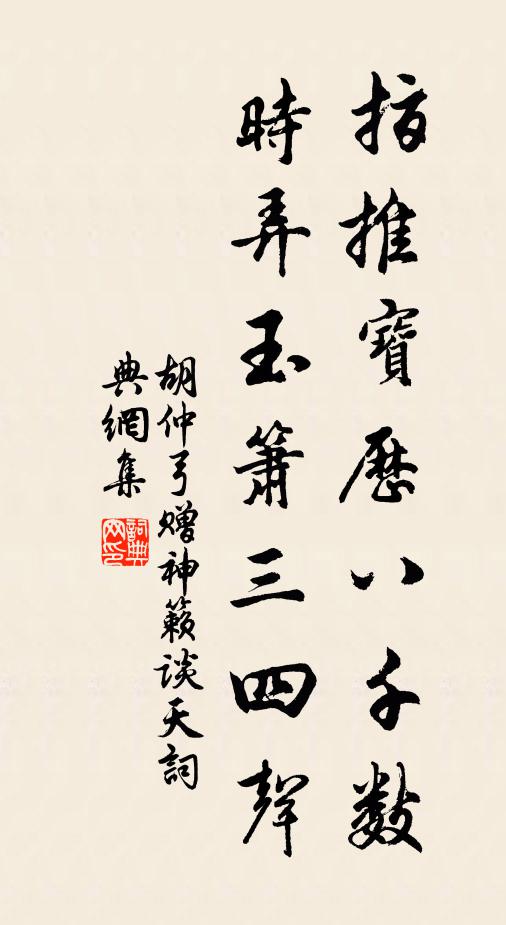 指推寶歷八千數
時弄玉簫三四聲
胡仲弓贈神籟談天詞
典網集
詞典網印